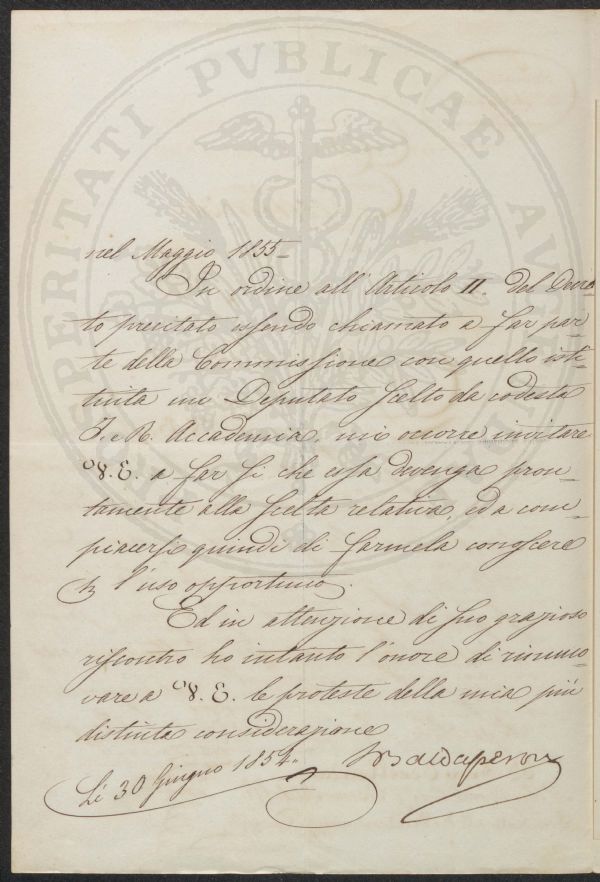 nel Maggio 1855_
In ordine all'Articolo II. del Decre-
to precitato essendo chiamato a far par-
te della Commissione con quello isti-
tuita un Deputato scelto da codesta
I. e R. Accademia, mi occorre invitare
V. E. a far sì, che essa devenga pron-
tamente alla scelta relativa, ed a com-
piacersi quindi di farmela conoscere
p. l'uso opportuno.
Ed in attenzione di suo grazioso
riscontro ho intanto l'onore di rinno-
vare a V. E. le proteste della mia più
distinta considerazione
Lì 30 Giugno 1854.
PROSPERITATI PVBLICAE